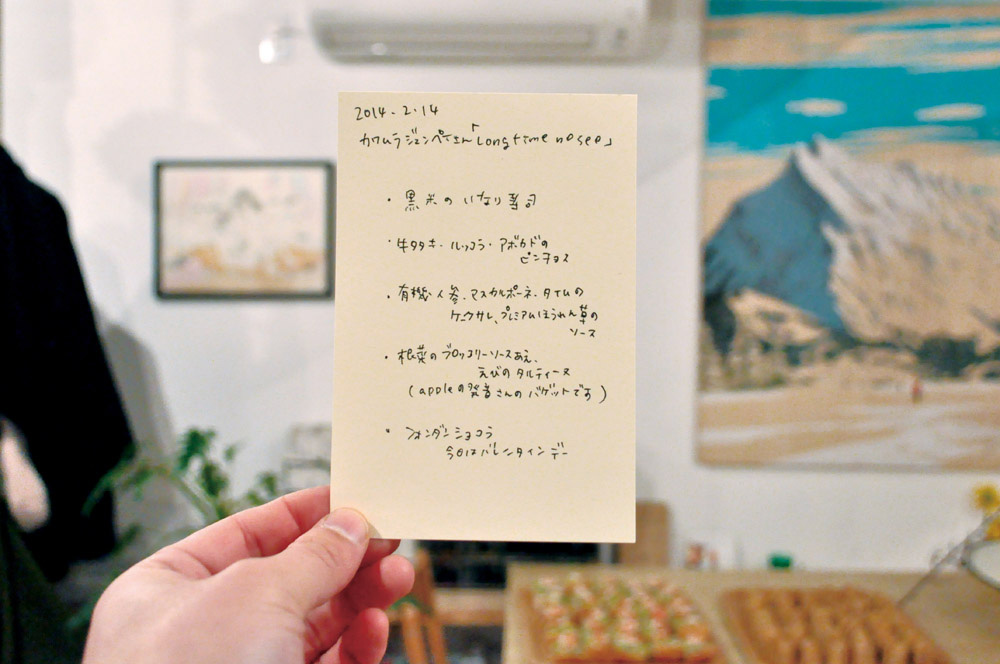 2014.2.14
カワムラジュンペイさん「Long time no see」
・黒米のいなり寿司
・牛タタキ・ルッコラ・アボカドの
ピンチョス
・有機人参、マスカルポーネ、タイムの
ケークサレ、プレミアムほうれん草の
ソース
・根菜のブロッコリーソースあえ、
えびのタルティーヌ
(appleの さんのバゲットです)
・フォンダンショコラ
今日はバレンタインデー